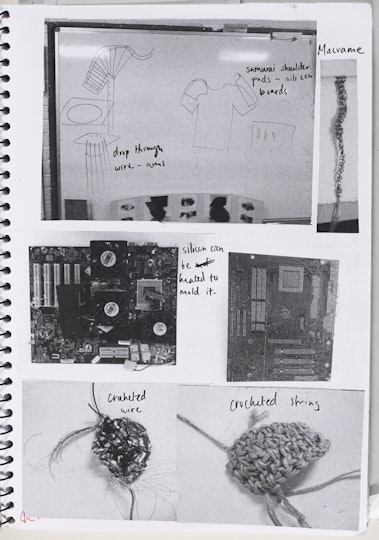 Macrame
samurai shoulder
pads - silicon
boards
drop through
wire - arms
silicon can
be
heated to
mold it.
crocheted
wire
crocheted string